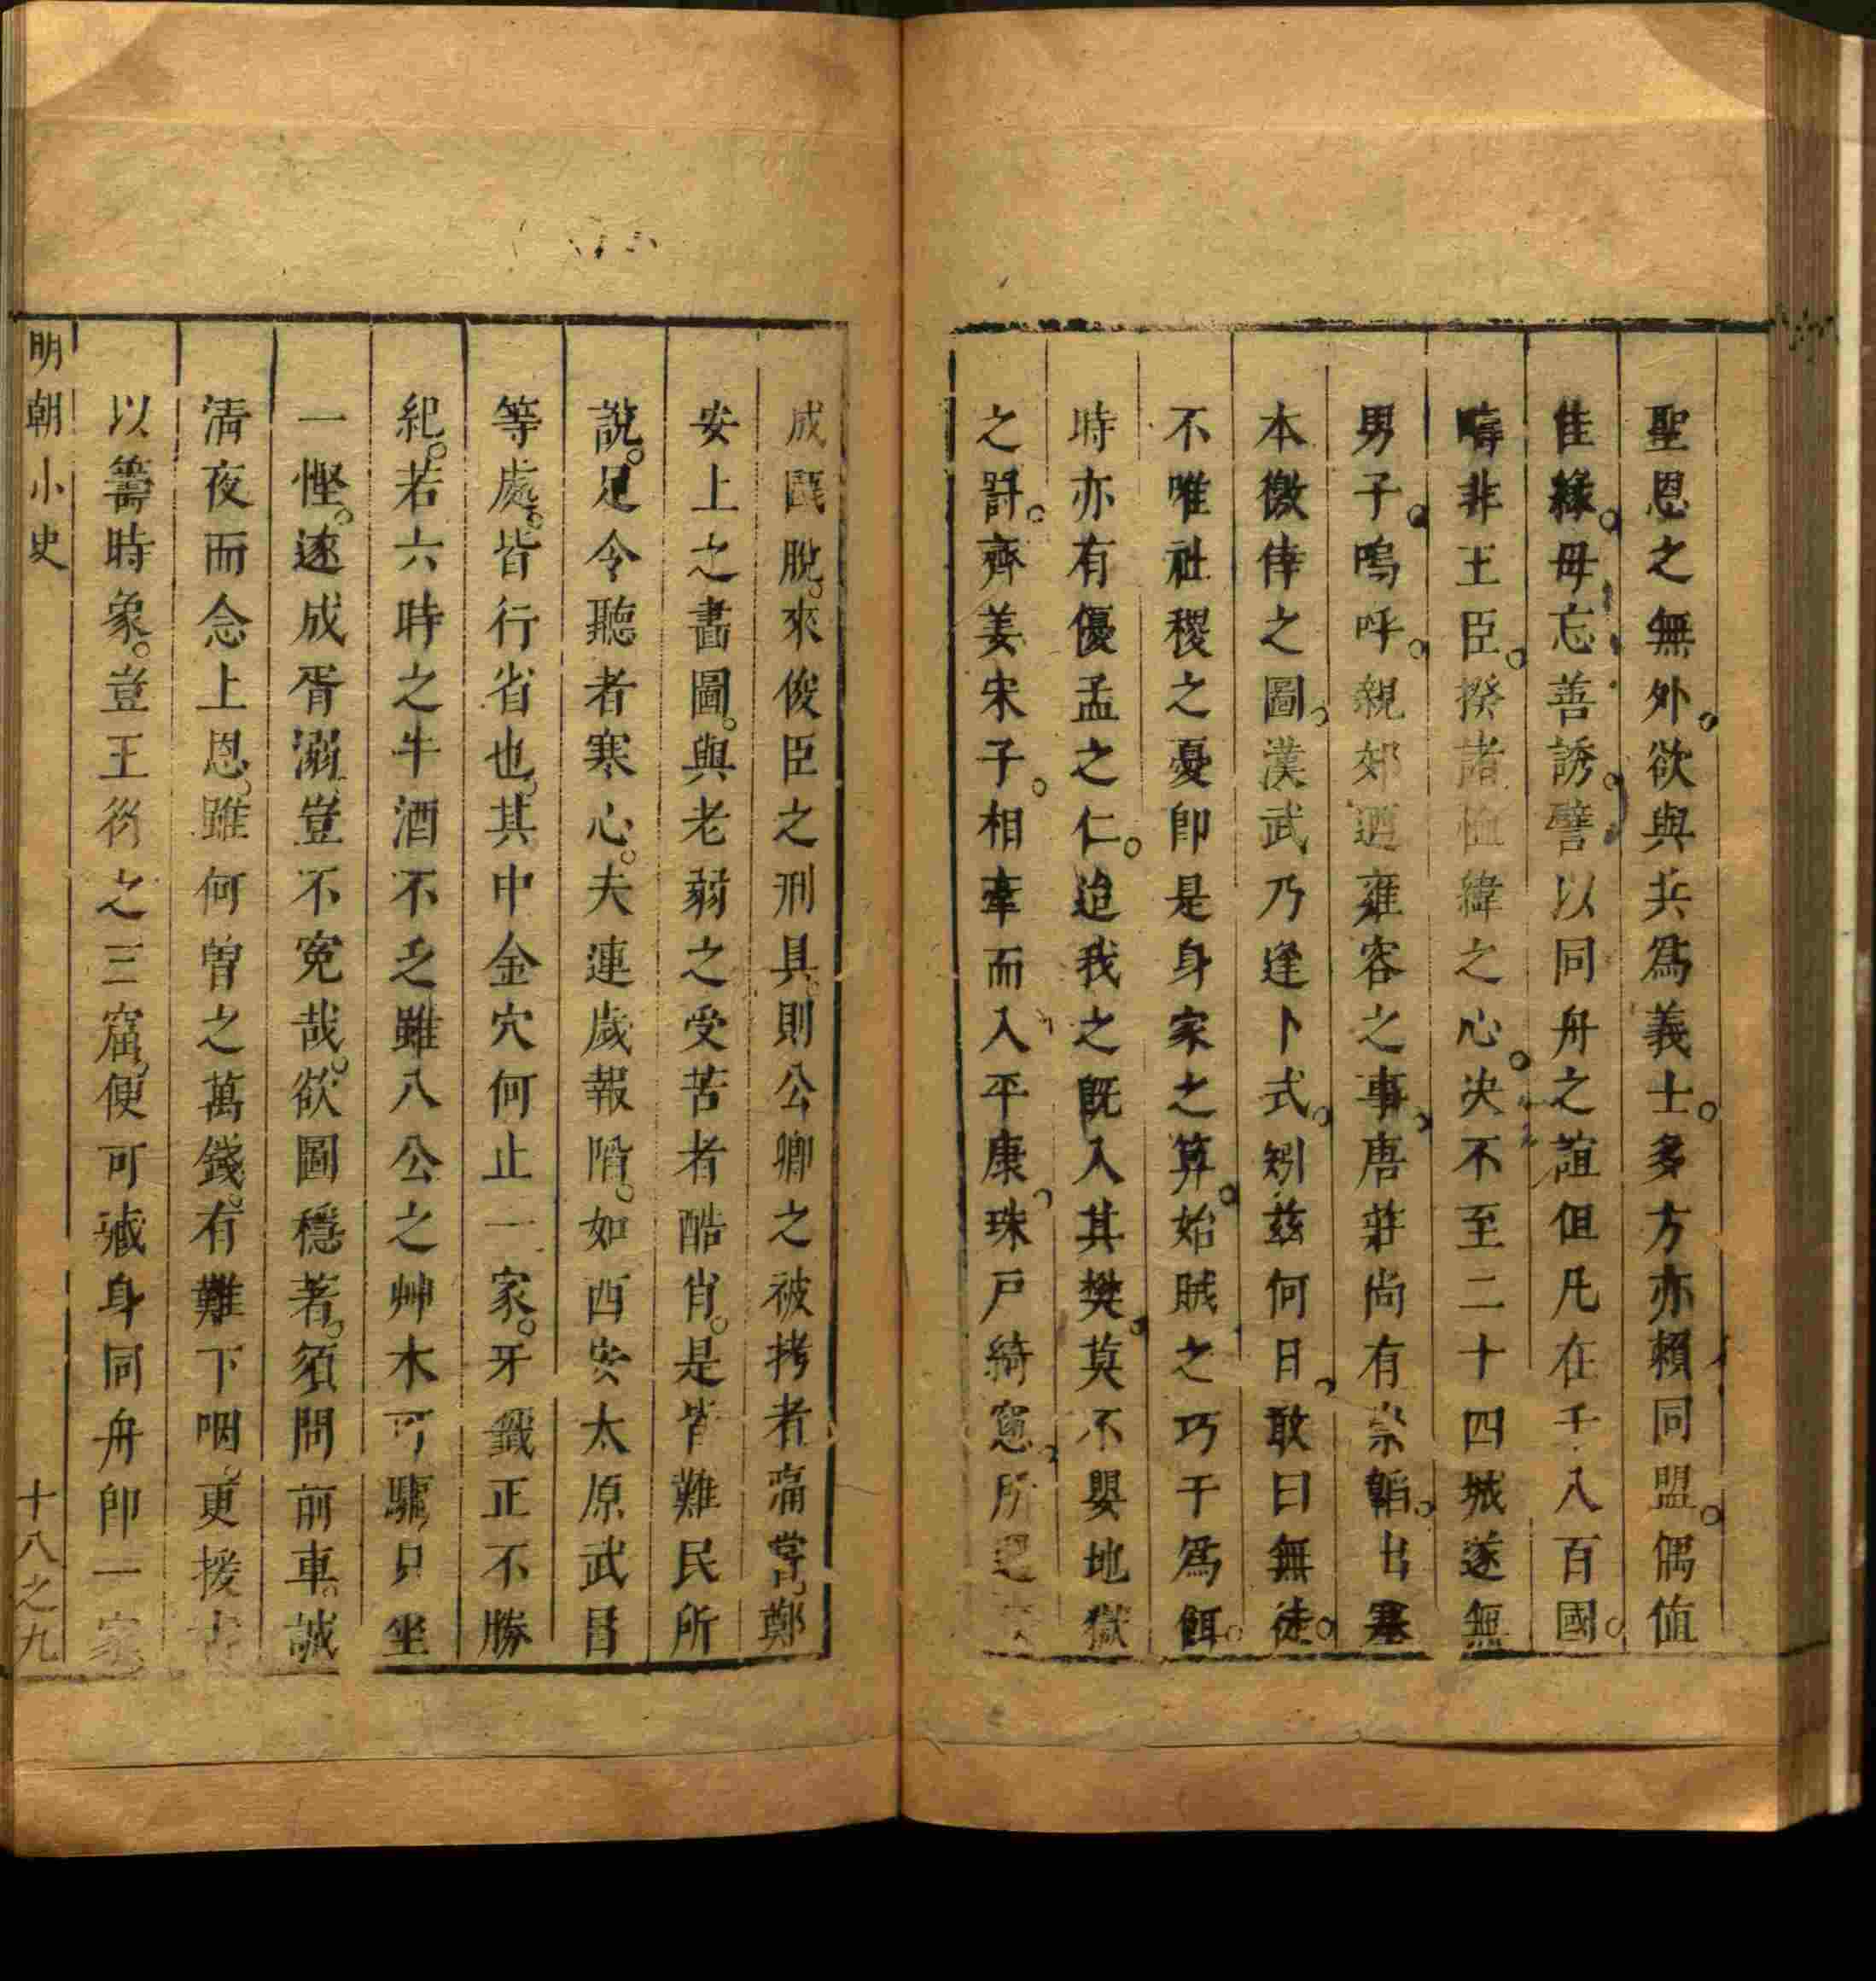 聖恩之無外。欲與共爲義士。多方亦賴同盟。偶值
佳緣。毋忘善誘。譬以同舟之誼但凡在千八百國。
疇非王臣。揆諸恤緯之心。决不至二十四城遂無
男子。嗚呼。親郊迎雍容之事。唐莊尚有崇韜。出塞
本徼倖之圖。漢武乃逢卜式。矧兹何日。敢曰無徒。
不唯社稷之憂卽是身家之算。始賊之巧于爲餌。
時亦有優孟之仁。迨我之旣入其樊。莫不嬰地獄
之罸。齊姜宋子。相牽而入平康。珠戸綺窻。所過
成甌脫。來俊臣之刑具。則公卿之被拷者痛嘗。鄭
安上之畵圖。與老弱之受苦者酷肖。是皆難民所
說。足令聽者寒心。夫連歲報陷。如西安太原武昌
等處。皆行省也。其中金穴何止一家。牙籤正不勝
紀。若六時之牛酒不乏雖八公之艸木可驅。只坐
一慳。遂成胥溺。豈不寃哉。欲圖穩著。須問前車。誠
清夜而念上恩。雖何曾之萬錢。有難下咽。更援古
以籌時象。豈王衍之三窟。便可藏身同舟卽一家
明朝小史
十八之九